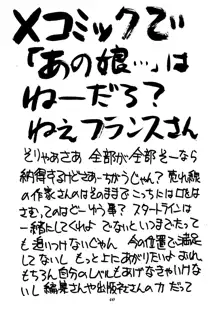 Xコミックで
「あの娘…」は
ねーだろ？
ねぇフランスさん
そりゃあさあ 全部が全部そーなら
納得するけどさあーちがうじゃん？ 売れ線
の作家さんのはそのままで こっちには
さむ、てのはどーゆう事？ スタートラインは
一緒にしてくれよ でないといつまでたって
も追いつけないじゃん 今の位置で満足
してないし もっと上にあがりたいよ
もちろん自分のレベルもあげなきゃいけな
いし 編集さんや出版社さんの力だって